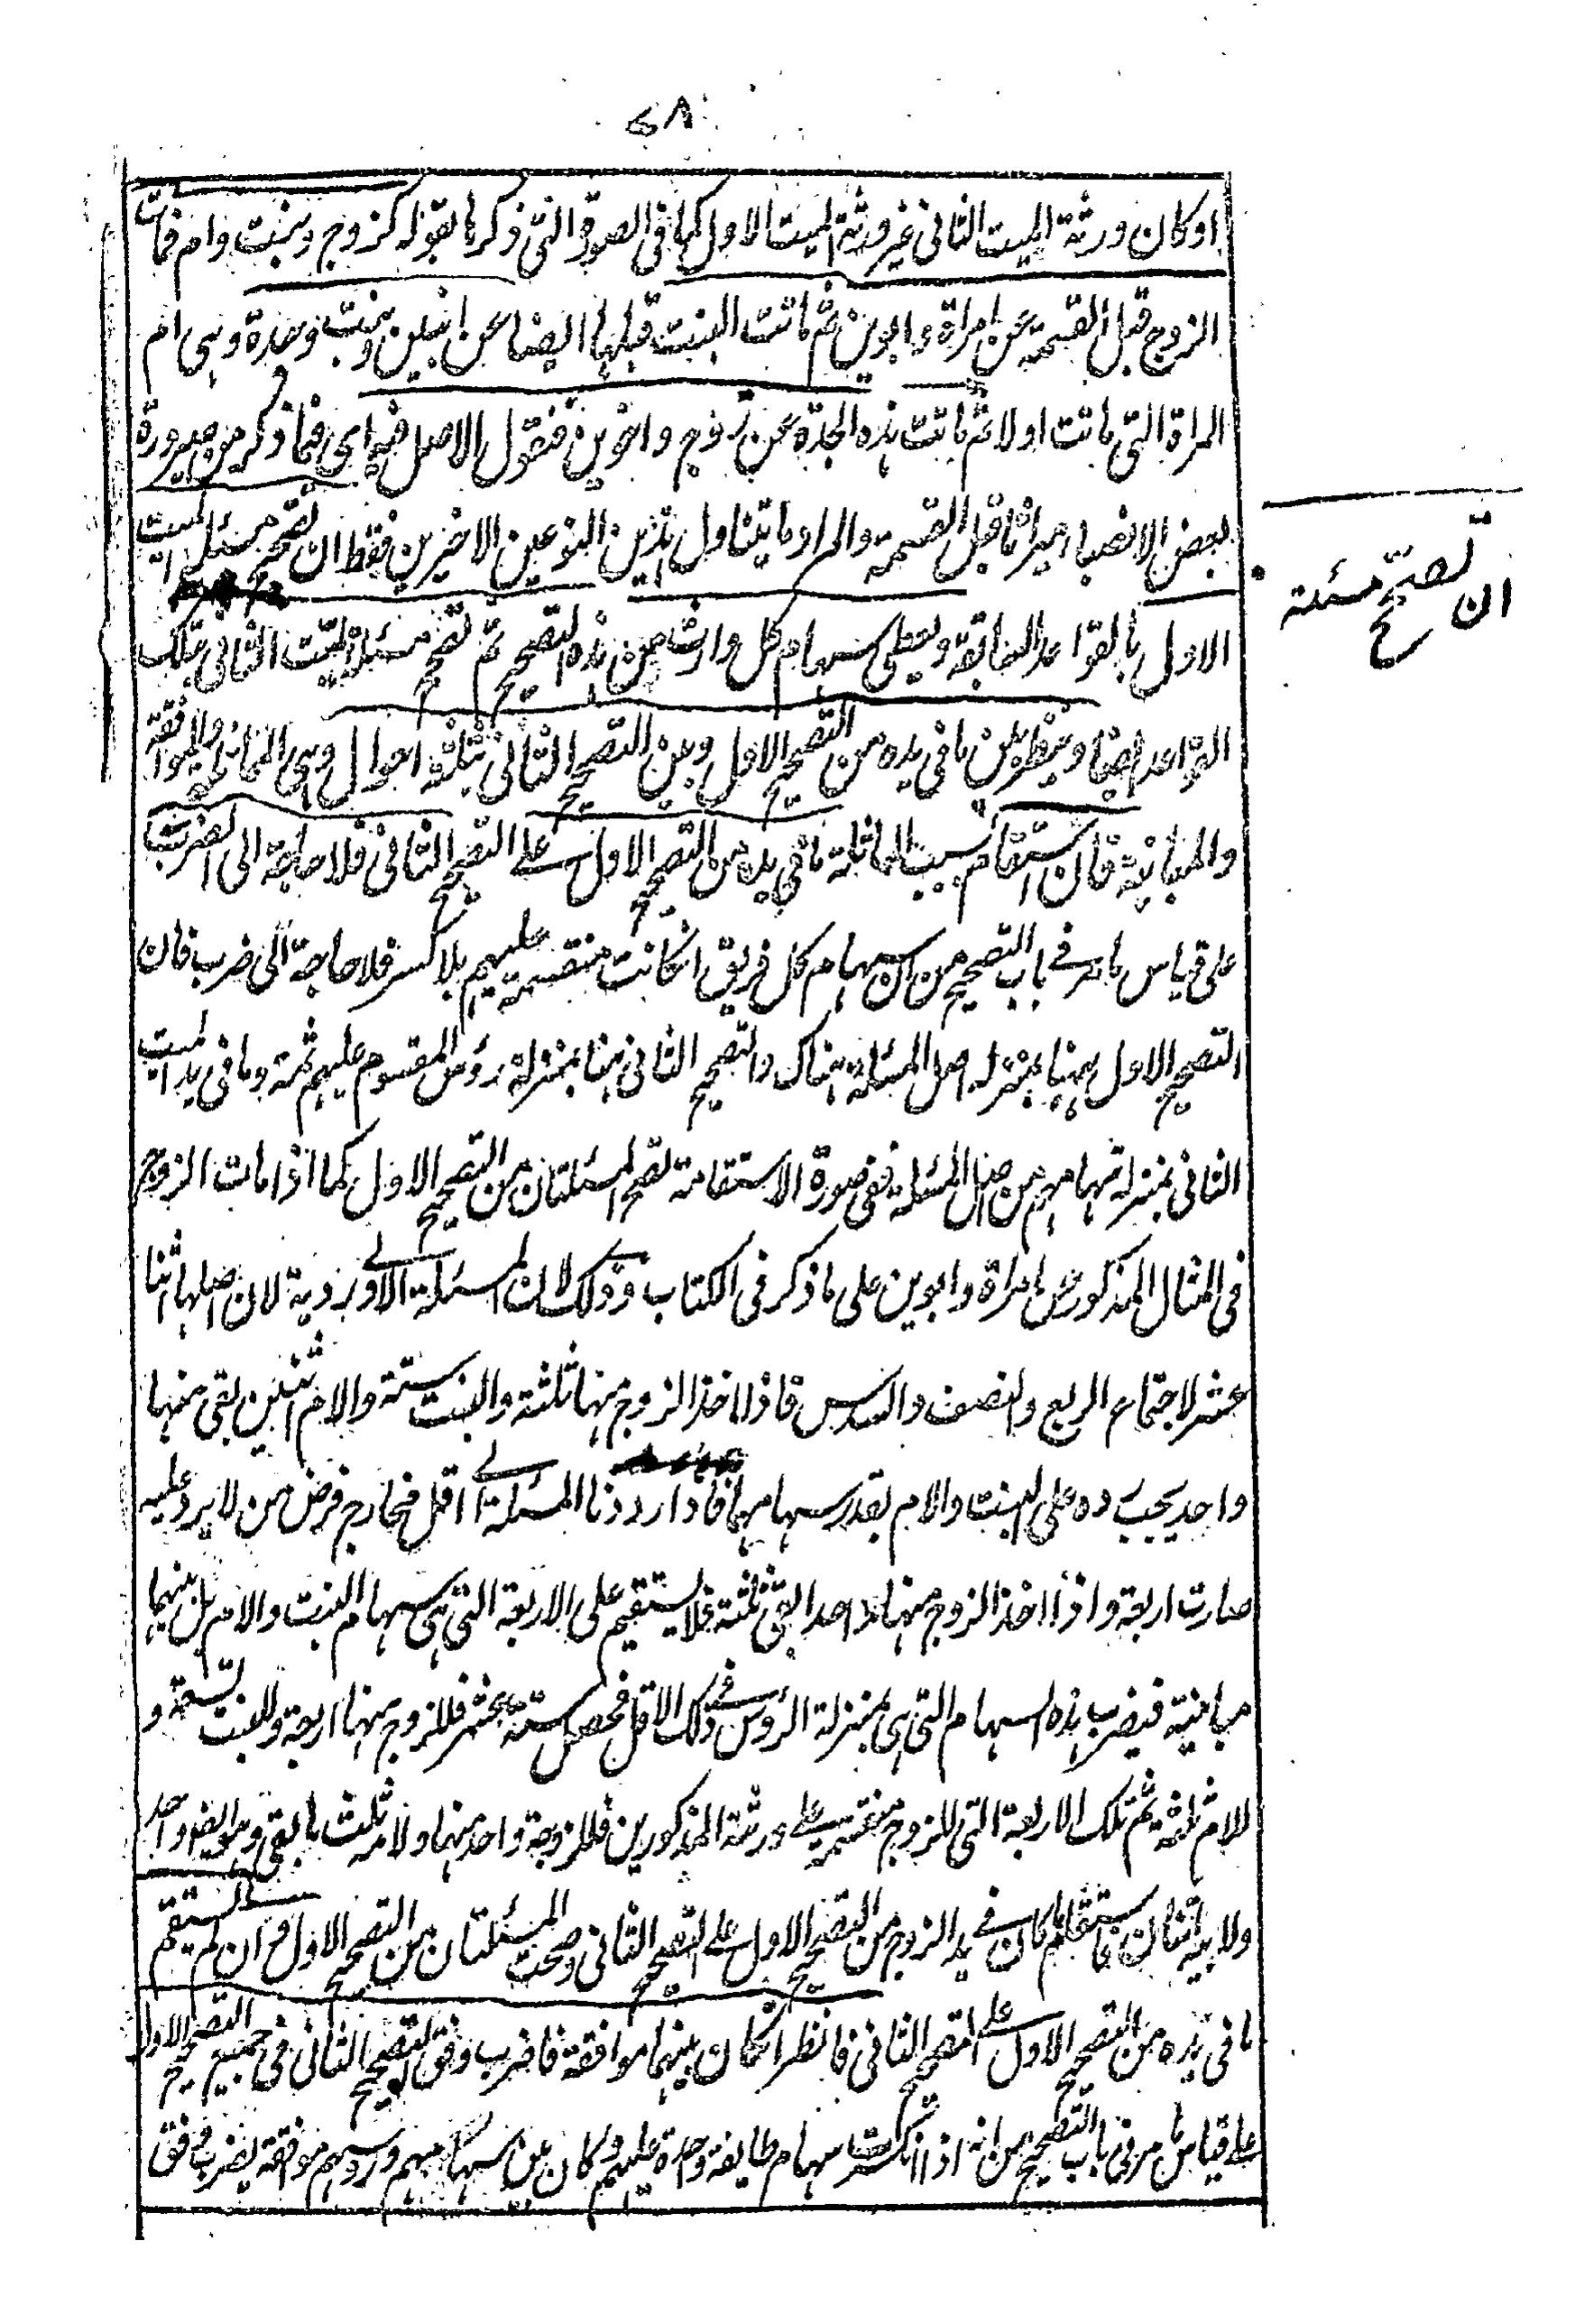 ٧٨
او كان ورثة الميت الثانى غير ورثة الميت الاول كما فى الصورة التى ذكرها بقوله كزوج وبنت وام فمات
الزوج قبل القسمة عن امراة وابوين ثم ماتت البنت قبلها ايضا عن ابنين وبنت وجدة وهى ام
المراة التى ماتت اولا ثم ماتت هذه الجدة عن زوج واخوين فنقول الاصل فيه اى فيما ذكر من صيرورة
بعض الانصباء ميراثا قبل القسمة والمراد ما يتناول هذين النوعين الاخيرين فقط ان تصحح مسئلة الميت
ان تصحّح مسئلة
الاول بالقواعد السابقة ويعطى سهام كل وارث من هذه التصحيح ثم تصحح مسئلة الميت الثانى بتلك
القواعد ايضا وينظر بين ما فى يده من التصحيح الاول وبين التصحيح الثانى ثلثة احوال وهى المماثلة والموافقة
والمباينة فان استقام بسبب المماثلة ما فى يده من التصحيح الاول على التصحيح الثانى فلا حاجة الى الضرب
على قياس ما مر فى باب التصحيح من ان سهام كل فريق انكانت منقسمة عليهم بلا كسر فلا حاجة الى ضرب فان
التصحيح الاول ههنا بمنزلة اصل المسئلة هناك والتصحيح الثانى هنا بمنزلة رؤس المقسوم عليهم ثمة وما فى يد الميت
الثانى بمنزلة سهامهم من اصل المسئلة ففى صورة الاستقامة تصح المسئلتان من التصحيح الاول كما اذا مات الزوج
فى المثال المذكور عن امراة وابوين على ما ذكر فى الكتاب وذلك لان المسئلة الاولى ردية لان اصلها اثنا
عشر لاجتماع الربع والنصف والسدس فاذا اخذ الزوج منها ثلثة والبنت ستة والام اثنين بقى منها
واحد يجب رده على البنت والام بقدر سهامهما فاذا رددنا المسئلة الى اقل مخارج فرض من لا يرد عليه
صارت اربعة واذا اخذ الزوج منها واحدا بقى ثلثة فلا يستقيم على الاربعة التى هى سهام البنت والام بل بينهما
مباينة فيضرب هذه السهام التى هى بمنزلة الرؤس فى ذلك الاقل فحصل ستة عشر فللزوج منها اربعة وللبنت تسعة و
للام ثلثة ثم تلك الاربعة التى للزوج منقسمة على ورثته المذكورين فللزوجة واحد منها ولامه ثلث ما بقى وهو ايضا واحد
ولابيه اثنان فاستقام ما كان فى يد الزوج من التصحيح الاول على التصحيح الثانى وصحت المسئلتان من التصحيح الاول وان لم يستقم
ما فى يده من التصحيح الاول على التصحيح الثانى فانظر ان كان بينهما موافقة فاضرب وفق التصحيح الثانى فى جميع التصحيح الاول
على قياس ما مر فى باب التصحيح من انه اذا انكسرت سهام طايفة واحدة عليهم وكان بين سهامهم ورؤسهم موافقة يضرب وفق